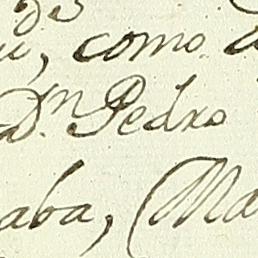 como
Dn Pedro
aba, (Ma